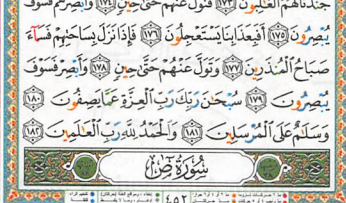 جُندَنَا لَهُمُ ٱلْغَٰلِبُونَ ١٧٣ فَتَوَلَّ عَنْهُمْ حَتَّىٰ حِينٍ ١٧٤ وَأَبْصِرْهُمْ فَسَوْفَ
يُبْصِرُونَ ١٧٥ أَفَبِعَذَابِنَا يَسْتَعْجِلُونَ ١٧٦ فَإِذَا نَزَلَ بِسَاحَتِهِمْ فَسَآءَ
صَبَاحُ ٱلْمُنذَرِينَ ١٧٧ وَتَوَلَّ عَنْهُمْ حَتَّىٰ حِينٍ ١٧٨ وَأَبْصِرْ فَسَوْفَ
يُبْصِرُونَ ١٧٩ سُبْحَٰنَ رَبِّكَ رَبِّ ٱلْعِزَّةِ عَمَّا يَصِفُونَ ١٨٠
وَسَلَٰمٌ عَلَى ٱلْمُرْسَلِينَ ١٨١ وَٱلْحَمْدُ لِلَّهِ رَبِّ ٱلْعَٰلَمِينَ ١٨٢
سُورَةُ صٓ
٤٥٢